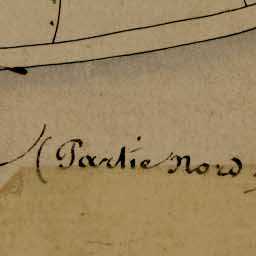 (Partie Nord